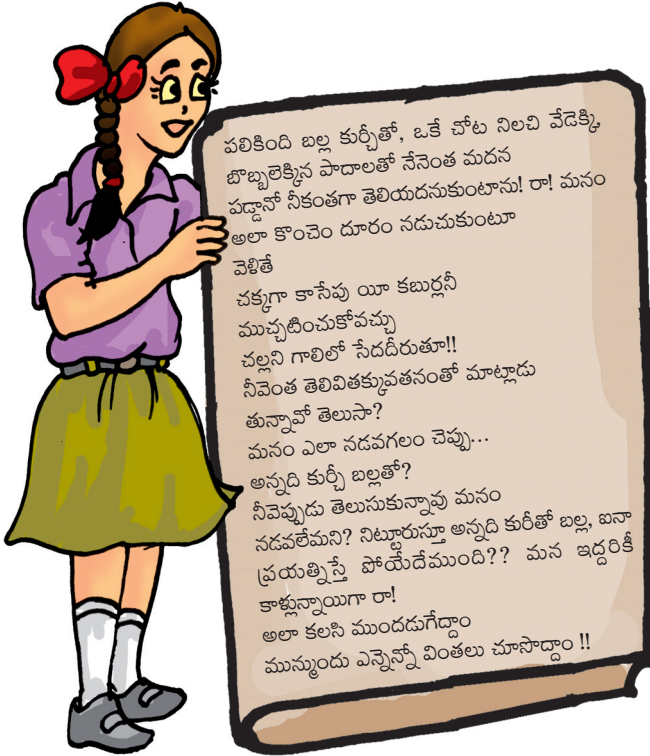 పలికింది బల్ల కుర్చీతో, ఒకే చోట నిలచి వేడెక్కి,
బొబ్బలెక్కిన పాదాలతో నేనెంత మదన
పడ్డానో నీకంతగా తెలియదనుకుంటాను! రా! మనం
అలా కొంచెం దూరం నడుచుకుంటూ
వెళితే
చక్కగా కాసేపు యీ కబుర్లనీ
ముచ్చటించుకోవచ్చు
చల్లని గాలిలో సేదదీరుతూ!!
నీవెంత తెలివితక్కువతనంతో మాట్లాడు
తున్నావో తెలుసా?
మనం ఎలా నడవగలం చెప్పు...
అన్నది కుర్చీ బల్లతో?
నీవెప్పుడు తెలుసుకున్నావు మనం
నడవలేమని? నిట్టూరుస్తూ అన్నది కురీతో బల్ల, ఐనా
ప్రయత్నిస్తే పోయేదేముంది?? మన ఇద్దరికీ
కాళ్లున్నాయిగా రా!
అలా కలసి ముందడుగేద్దాం
మున్ముందు ఎన్నెన్నో వింతలు చూసొద్దాం !!